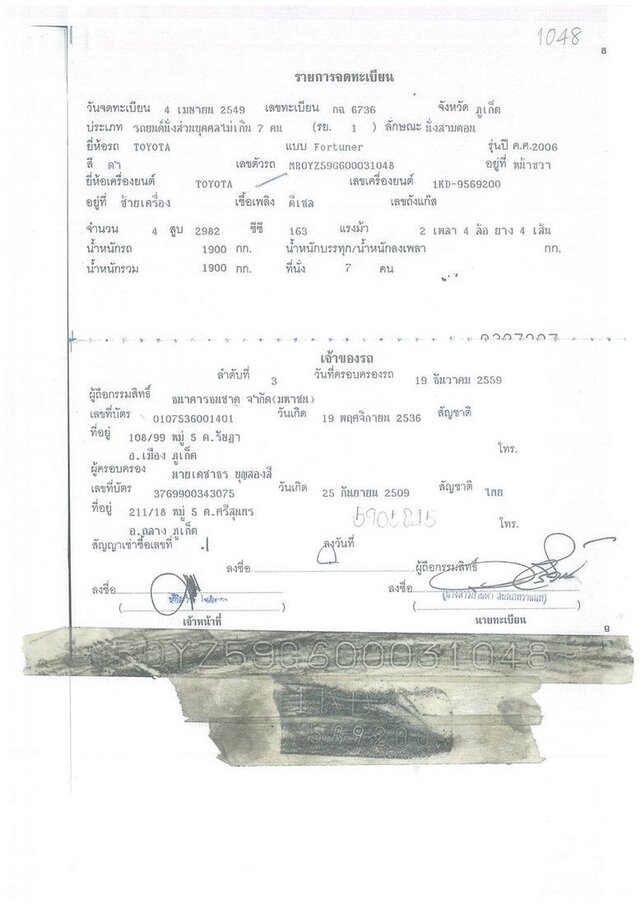 1048
8
รายการจดทะเบียน
วันจดทะเบียน 4 เมษายน 2549 เลขทะเบียน กฉ 6736 จังหวัด ภูเก็ต
ประเภท รถยนต์นั่งส่วนบุคคลไม่เกิน 7 คน (รย. 1 ) ลักษณะ นั่งสามตอน
ยี่ห้อรถ TOYOTA แบบ Fortuner รุ่นปี ค.ศ.2006
สี ดำ เลขตัวรถ MROYZ59G600031048 อยู่ที่ หน้าขวา
ยี่ห้อเครื่องยนต์ TOYOTA เลขเครื่องยนต์ 1KD-9569200
อยู่ที่ ซ้ายเครื่อง เชื้อเพลิง ดีเซล เลขถังแก๊ส
จำนวน 4 สูบ 2982 ซีซี 163 แรงม้า 2 เพลา 4 ล้อ ยาง 4 เส้น
น้ำหนักรถ 1900 กก. น้ำหนักบรรทุก/น้ำหนักลงเพลา กก.
น้ำหนักรวม 1900 กก. ที่นั่ง 7 คน
เจ้าของรถ
ลำดับที่ 3 วันที่ครอบครองรถ 19 ธันวาคม 2559
ผู้ถือกรรมสิทธิ์ ธนาคารธนชาต จำกัด(มหาชน)
เลขที่บัตร 0107536001401 วันเกิด 19 พฤศจิกายน 2536 สัญชาติ
ที่อยู่ 108/99 หมู่ 5 ต.รัษฎา
อ.เมือง ภูเก็ต โทร.
ผู้ครอบครอง นายเดชาธร บุญสองสี
เลขที่บัตร 3769900343075 วันเกิด 25 กันยายน 2509 สัญชาติ ไทย
ที่อยู่ 211/18 หมู่ 5 ต.ศรีสุนทร
อ.ถลาง ภูเก็ต โทร.
สัญญาเช่าซื้อเลขที่ ลงวันที่
ลงชื่อ ผู้ถือกรรมสิทธิ์
ลงชื่อ ลงชื่อ
เจ้าหน้าที่ นายทะเบียน
9
0YZ59G600031048